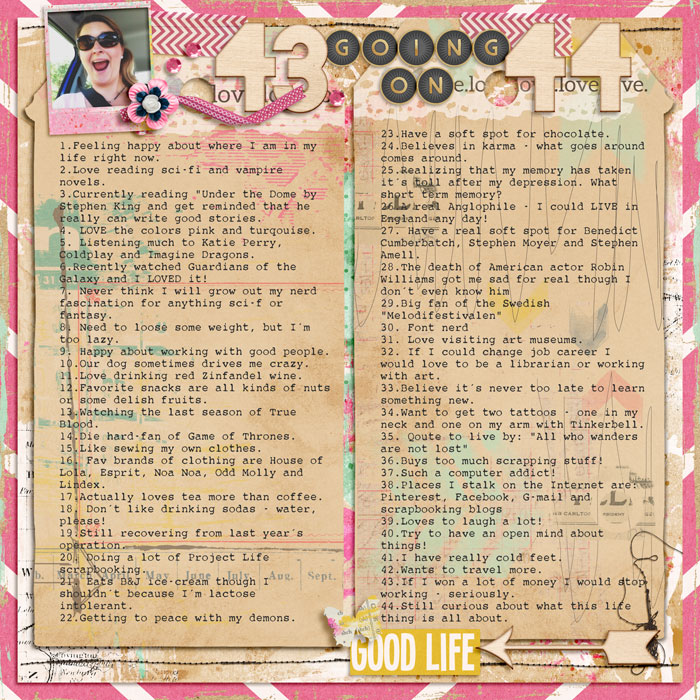 43 GOING ON 44
love
e.lo
.love
ve.
1.Feeling happy about where I am in my
life right now.
2.Love reading sci-fi and vampire
novels.
3.Currently reading "Under the Dome by
Stephen King and get reminded that he
really can write good stories.
4. LOVE the colors pink and turquoise.
5. Listening much to Katie Perry,
Coldplay and Imagine Dragons.
6.Recently watched Guardians of the
Galaxy and I LOVED it!
7. Never think I will grow out my nerd
fascination for anything sci-f or
fantasy.
8. Need to loose some weight, but I´m
too lazy.
9. Happy about working with good people.
10.Our dog sometimes drives me crazy.
11.Love drinking red Zinfandel wine.
12.Favorite snacks are all kinds of nuts
or some delish fruits.
13.Watching the last season of True
Blood.
14.Die hard-fan of Game of Thrones.
15.Like sewing my own clothes.
16. Fav brands of clothing are House of
Lola, Esprit, Noa Noa, Odd Molly and
Lindex.
17.Actually loves tea more than coffee.
18. Don´t like drinking sodas - water,
please!
19.Still recovering from last year´s
operation.
20. Doing a lot of Project Life
scrapbooking.
21. Eats B&J ice-cream though I
shouldn´t because I´m lactose
intolerant.
22.Getting to peace with my demons.
23.Have a soft spot for chocolate.
24.Believes in karma - what goes around
comes around.
25.Realizing that my memory has taken
it´s toll after my depression. What
short term memory?
26.A real Anglophile - I could LIVE in
England any day!
27. Have a real soft spot for Benedict
Cumberbatch, Stephen Moyer and Stephen
Amell.
28.The death of American actor Robin
Williams got me sad for real though I
don´t even know him
29.Big fan of the Swedish
"Melodifestivalen"
30. Font nerd
31. Love visiting art museums.
32. If I could change job career I
would love to be a librarian or working
with art.
33.Believe it´s never too late to learn
something new.
34.Want to get two tattoos - one in my
neck and one on my arm with Tinkerbell.
35. Qoute to live by: "All who wanders
are not lost"
36.Buys too much scrapping stuff!
37.Such a computer addict!
38.Places I stalk on the Internet are:
Pinterest, Facebook, G-mail and
scrapbooking blogs
39.Loves to laugh a lot!
40.Try to have an open mind about
things!
41.I have really cold feet.
42.Wants to travel more.
43.If I won a lot of money I would stop
working - seriously.
44.Still curious about what this life
thing is all about.
March April May June July Aug. Sept.
GOOD LIFE